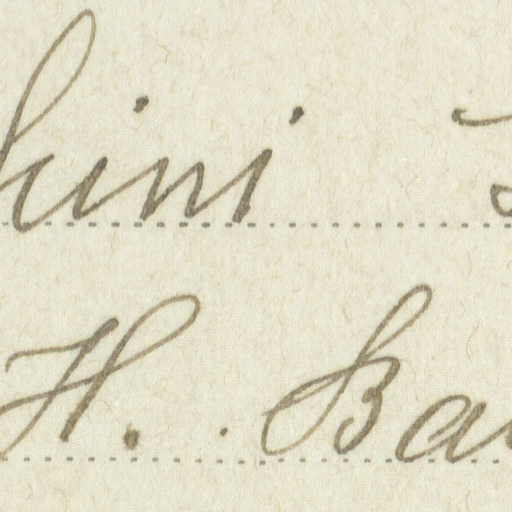 kini
H. Ba